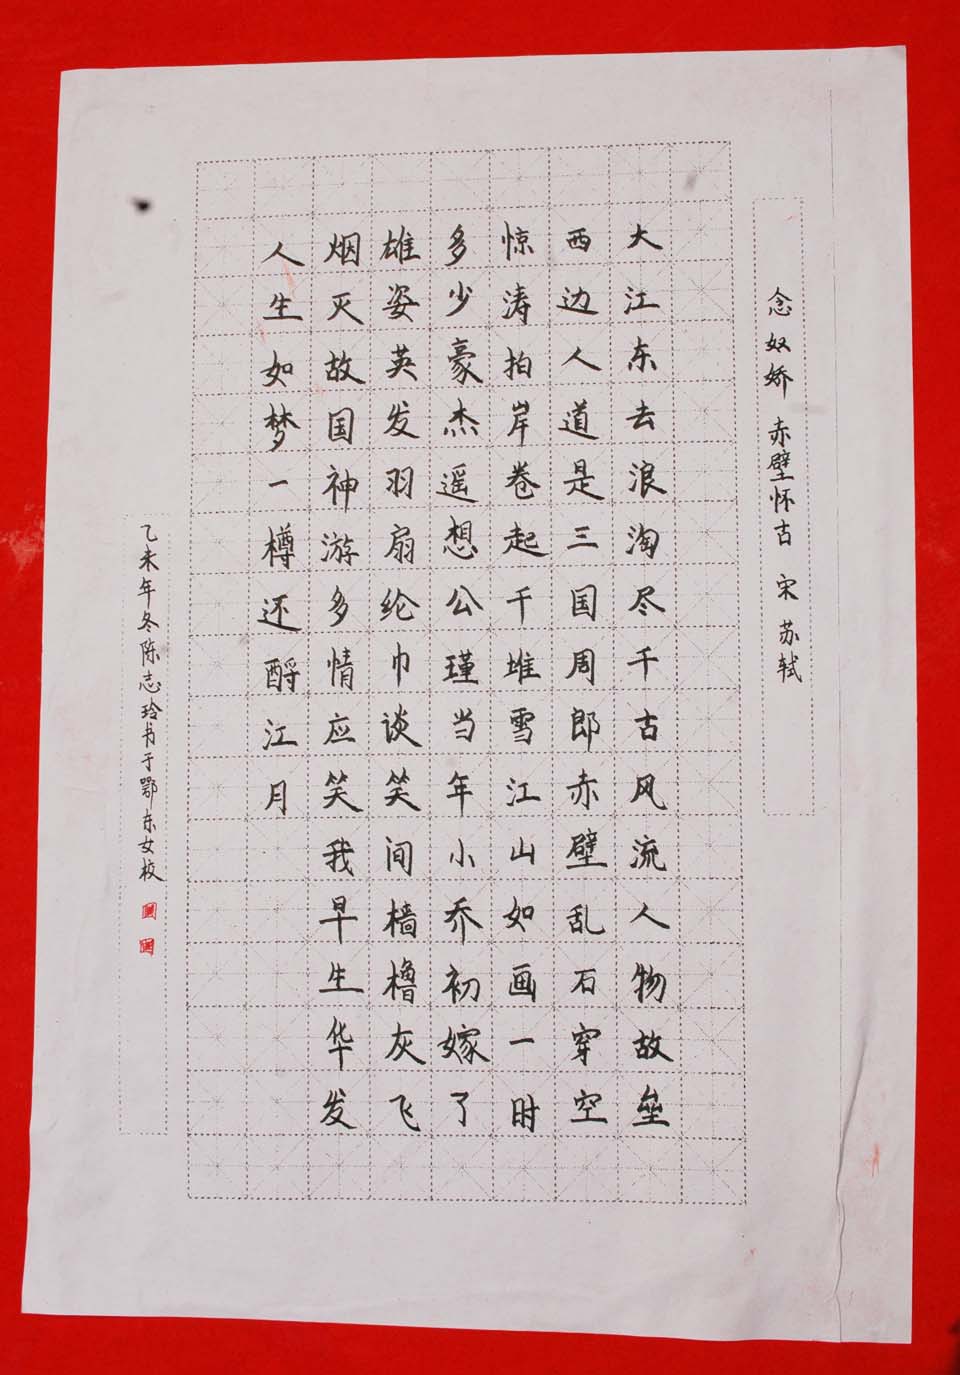 念奴娇 赤壁怀古 宋 苏轼
大江东去浪淘尽千古风流人物故垒
西边人道是三国周郎赤壁乱石穿空
惊涛拍岸卷起千堆雪江山如画一时
多少豪杰遥想公瑾当年小乔初嫁了
雄姿英发羽扇纶巾谈笑间樯橹灰飞
烟灭故国神游多情应笑我早生华发
人生如梦一樽还酹江月
乙未年冬陈志玲书于鄂东女校